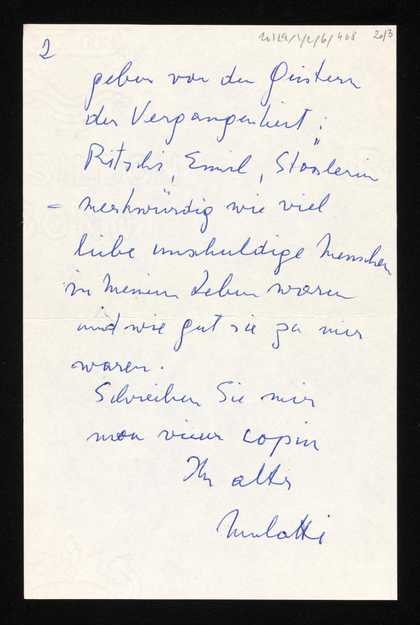 2
geben von den Geistern
der Vergangenheit:
Ritschi, Emil, Stöslerin
= merkwürdig wie viel
liebe unschuldige Menschen
in meinem Leben waren
und wie gut sie zu mir
waren.
Schreiben Sie mir
mon vieux copin
Ihr alter